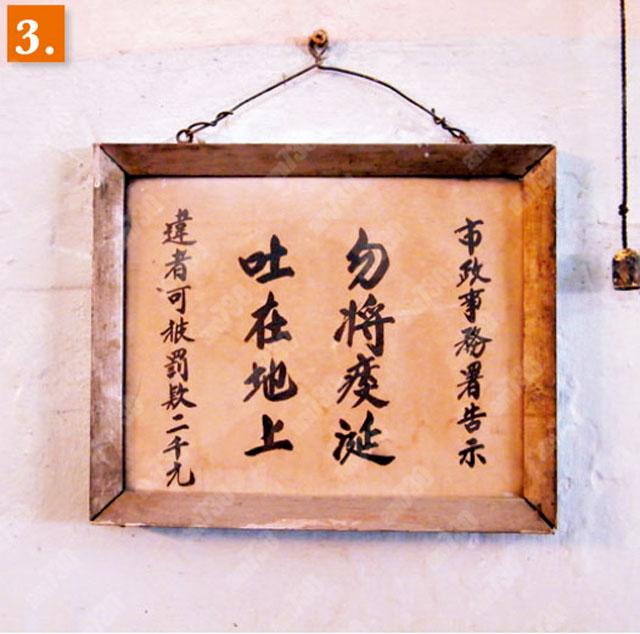 3.
市政事務署告示
勿將痰涎
吐在地上
違者可被罰款二千元
am730